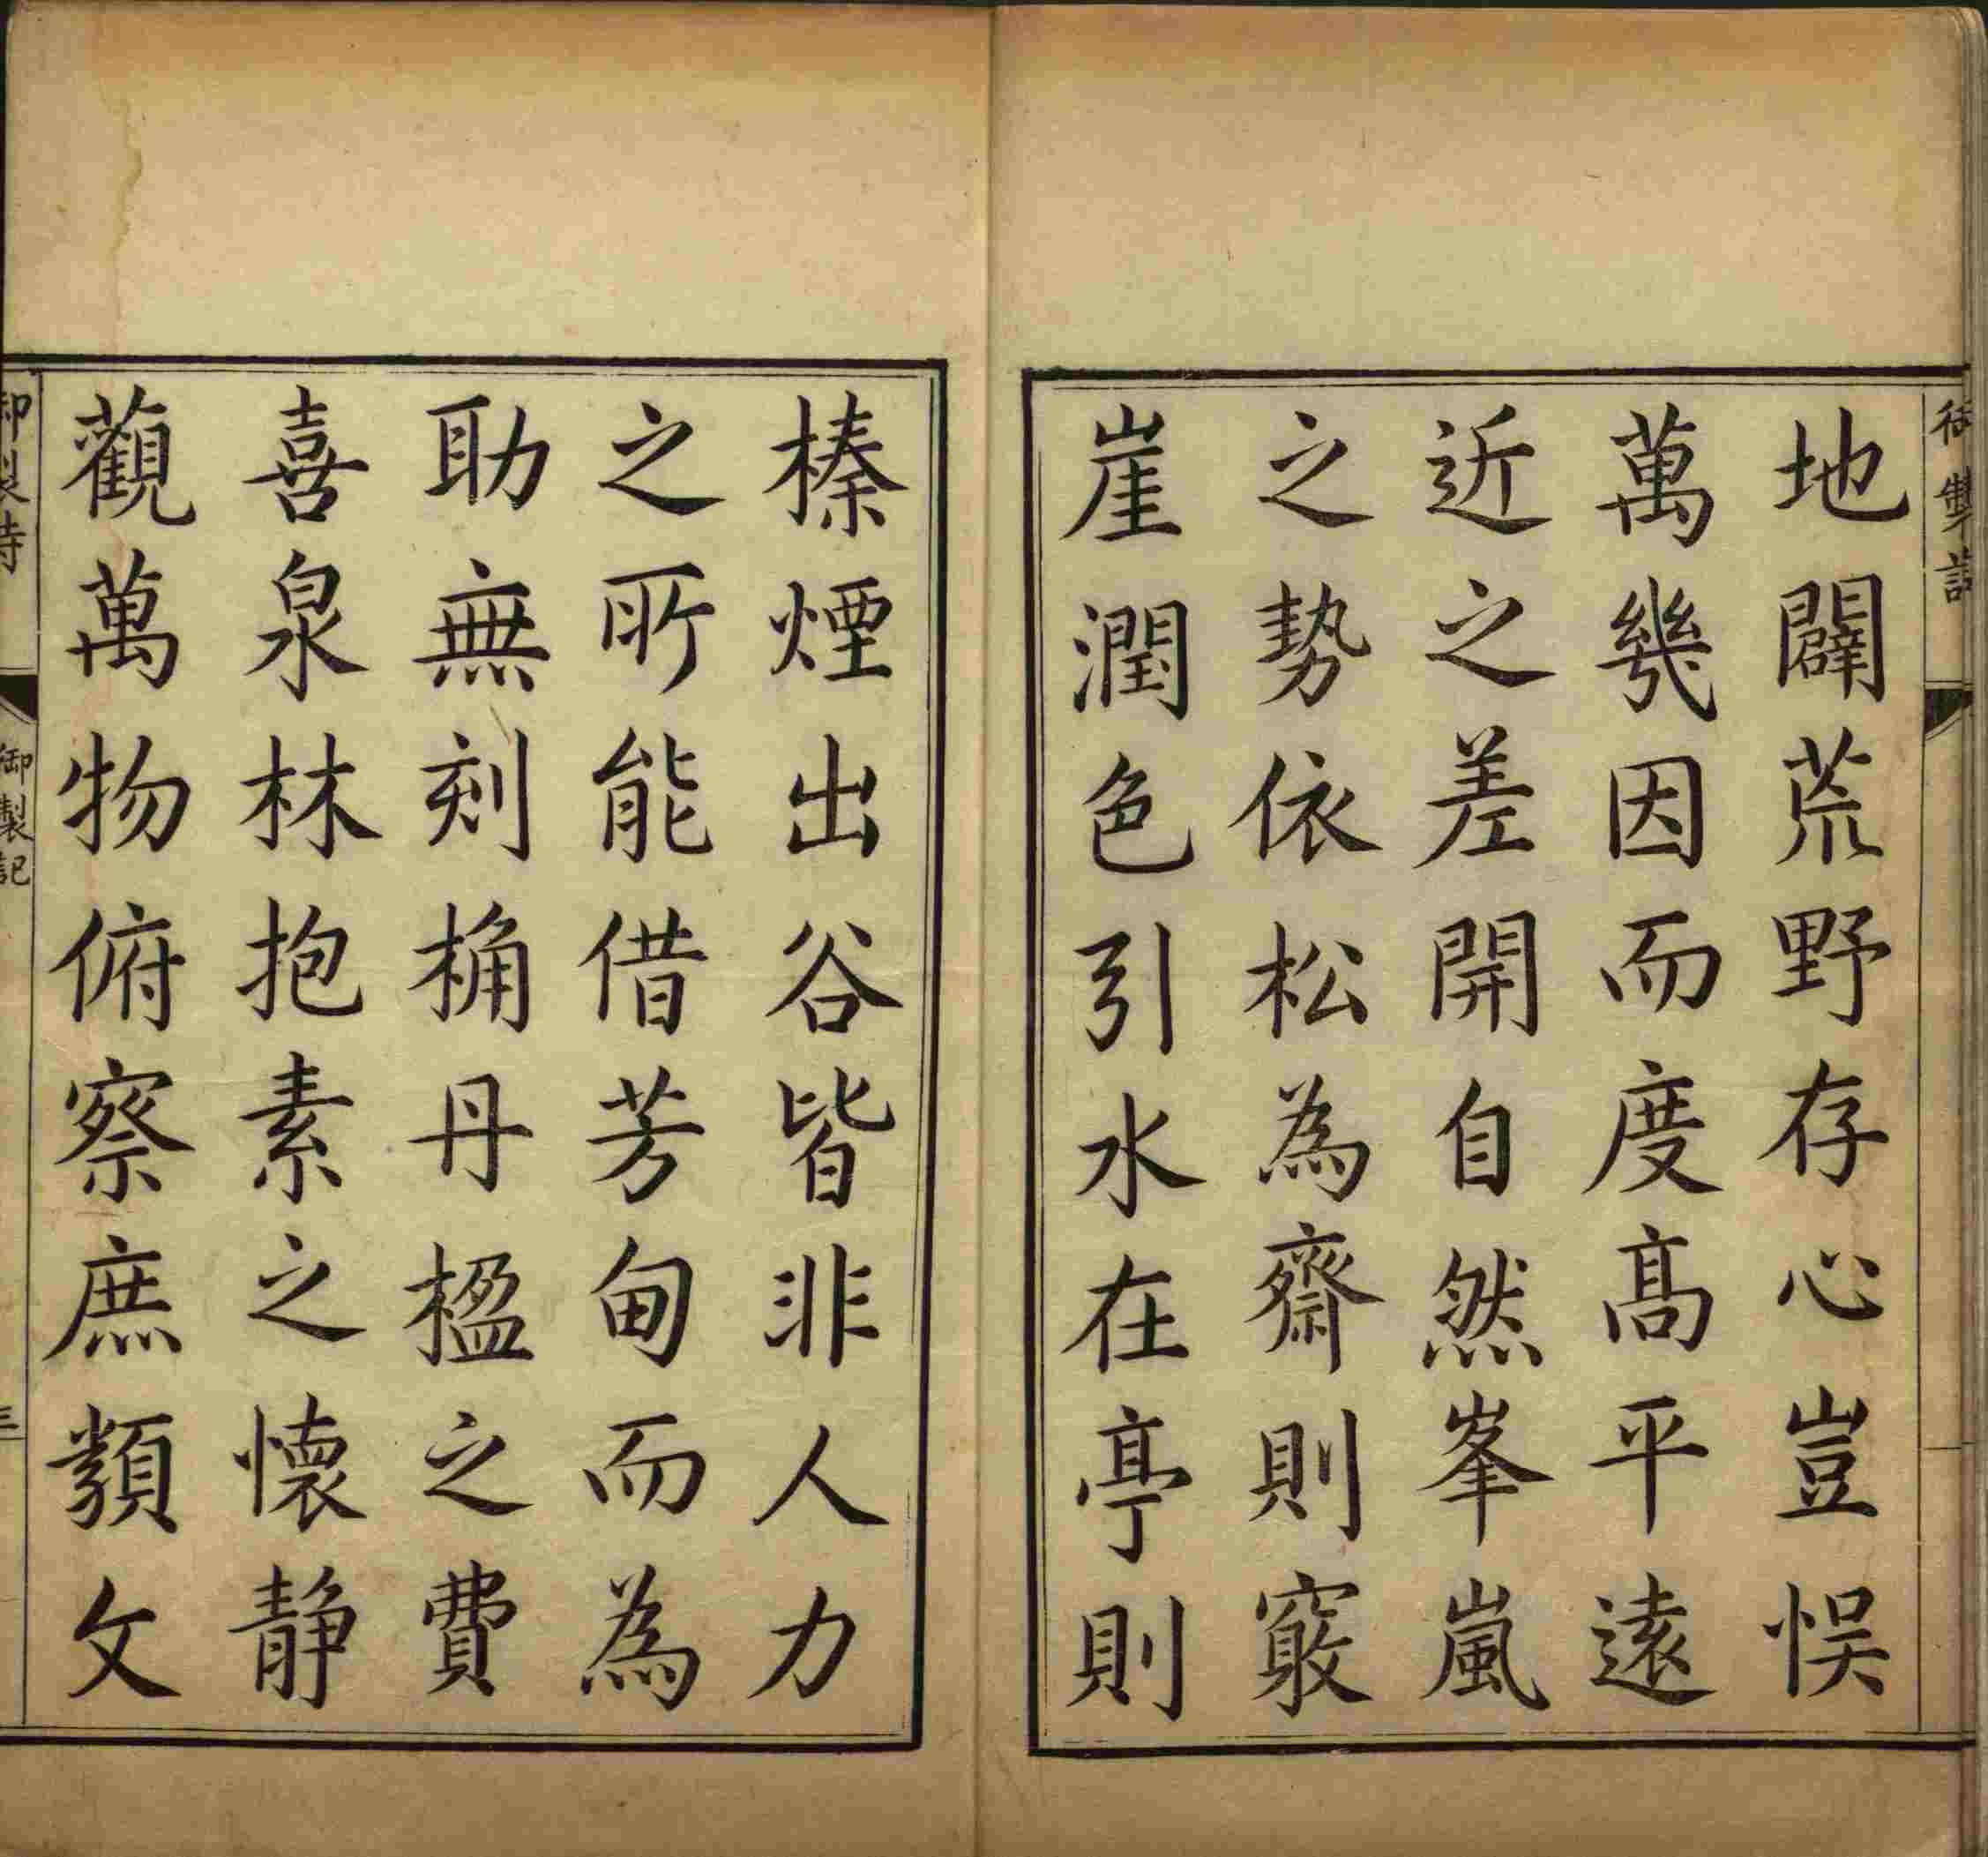 地闢荒野存心豈悞
萬幾因而度髙平逺
近之差開自然峯嵐
之勢依松為齋則竅
崖潤色引水在亭則
榛煙出谷皆非人力
之所能借芳甸而為
助無刻桷丹楹之費
喜泉林抱素之懷静
觀萬物俯察庶類文
御製詩
御製記
三